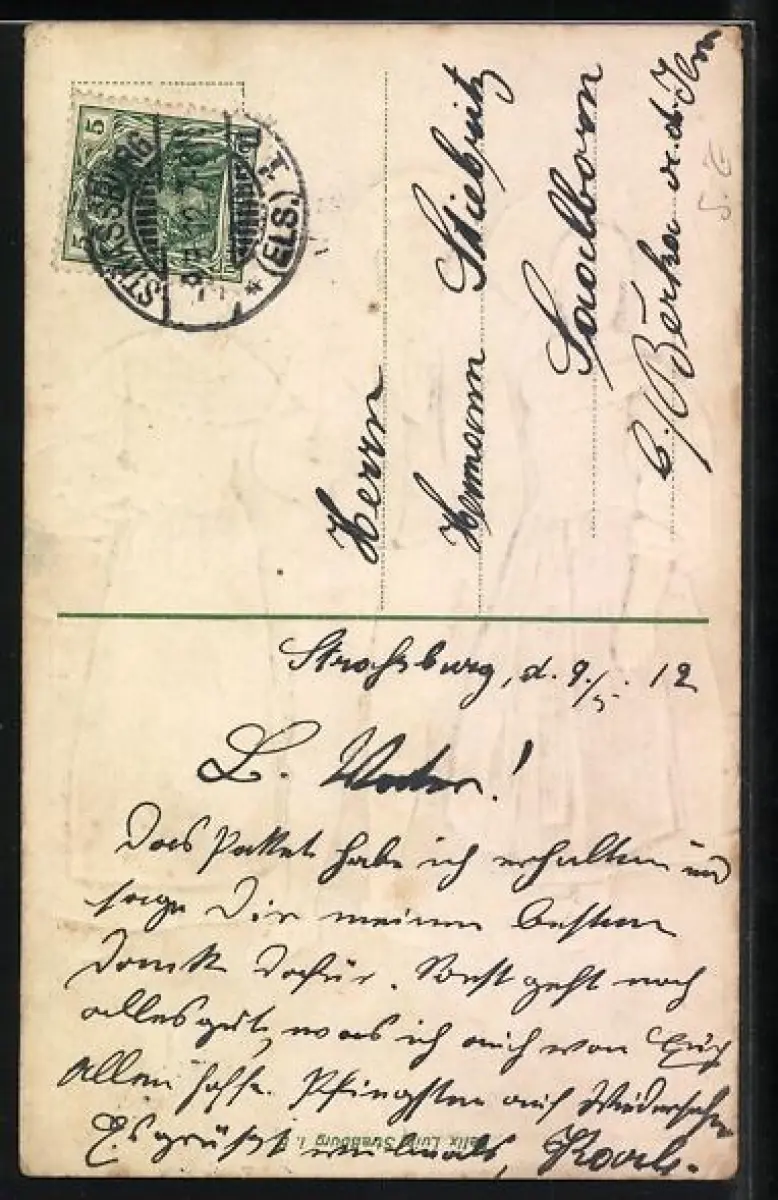 STRASSBURG
(ELS.) 1
5
5
Herrn
Hermann Stiebritz
Saalborn
b./Berka a. d. Ilm
Straßburg, d. 9./5. 12
L. Vater!
Das Paket habe ich erhalten und
sage Dir meinen besten
Dank dafür. Sonst geht noch
alles gut, was ich auch von Euch
allen hoffe. Pfingsten auf Wiedersehen
Es grüßt vielmals, Karl.
Felix Luib, Straßburg i. E.